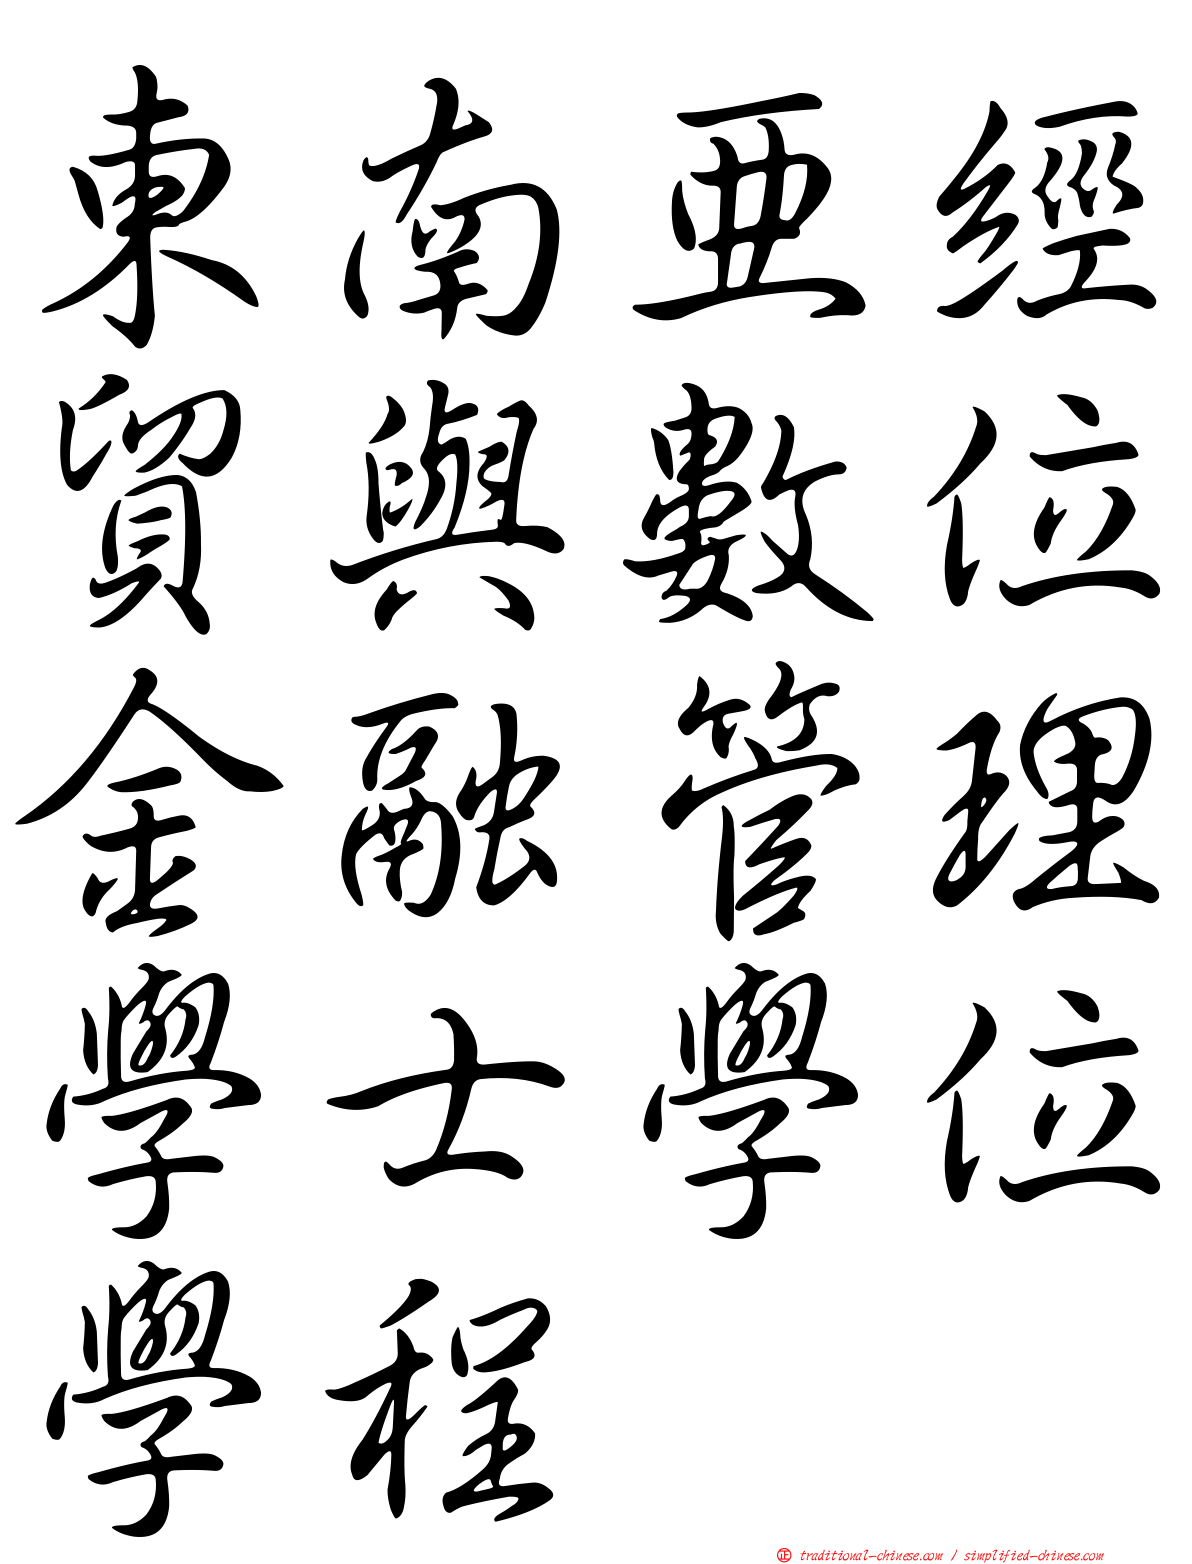 東南亞經
貿與數位
金融管理
學士學位
學程
㊣ traditional-chinese.com / simplified-chinese.com